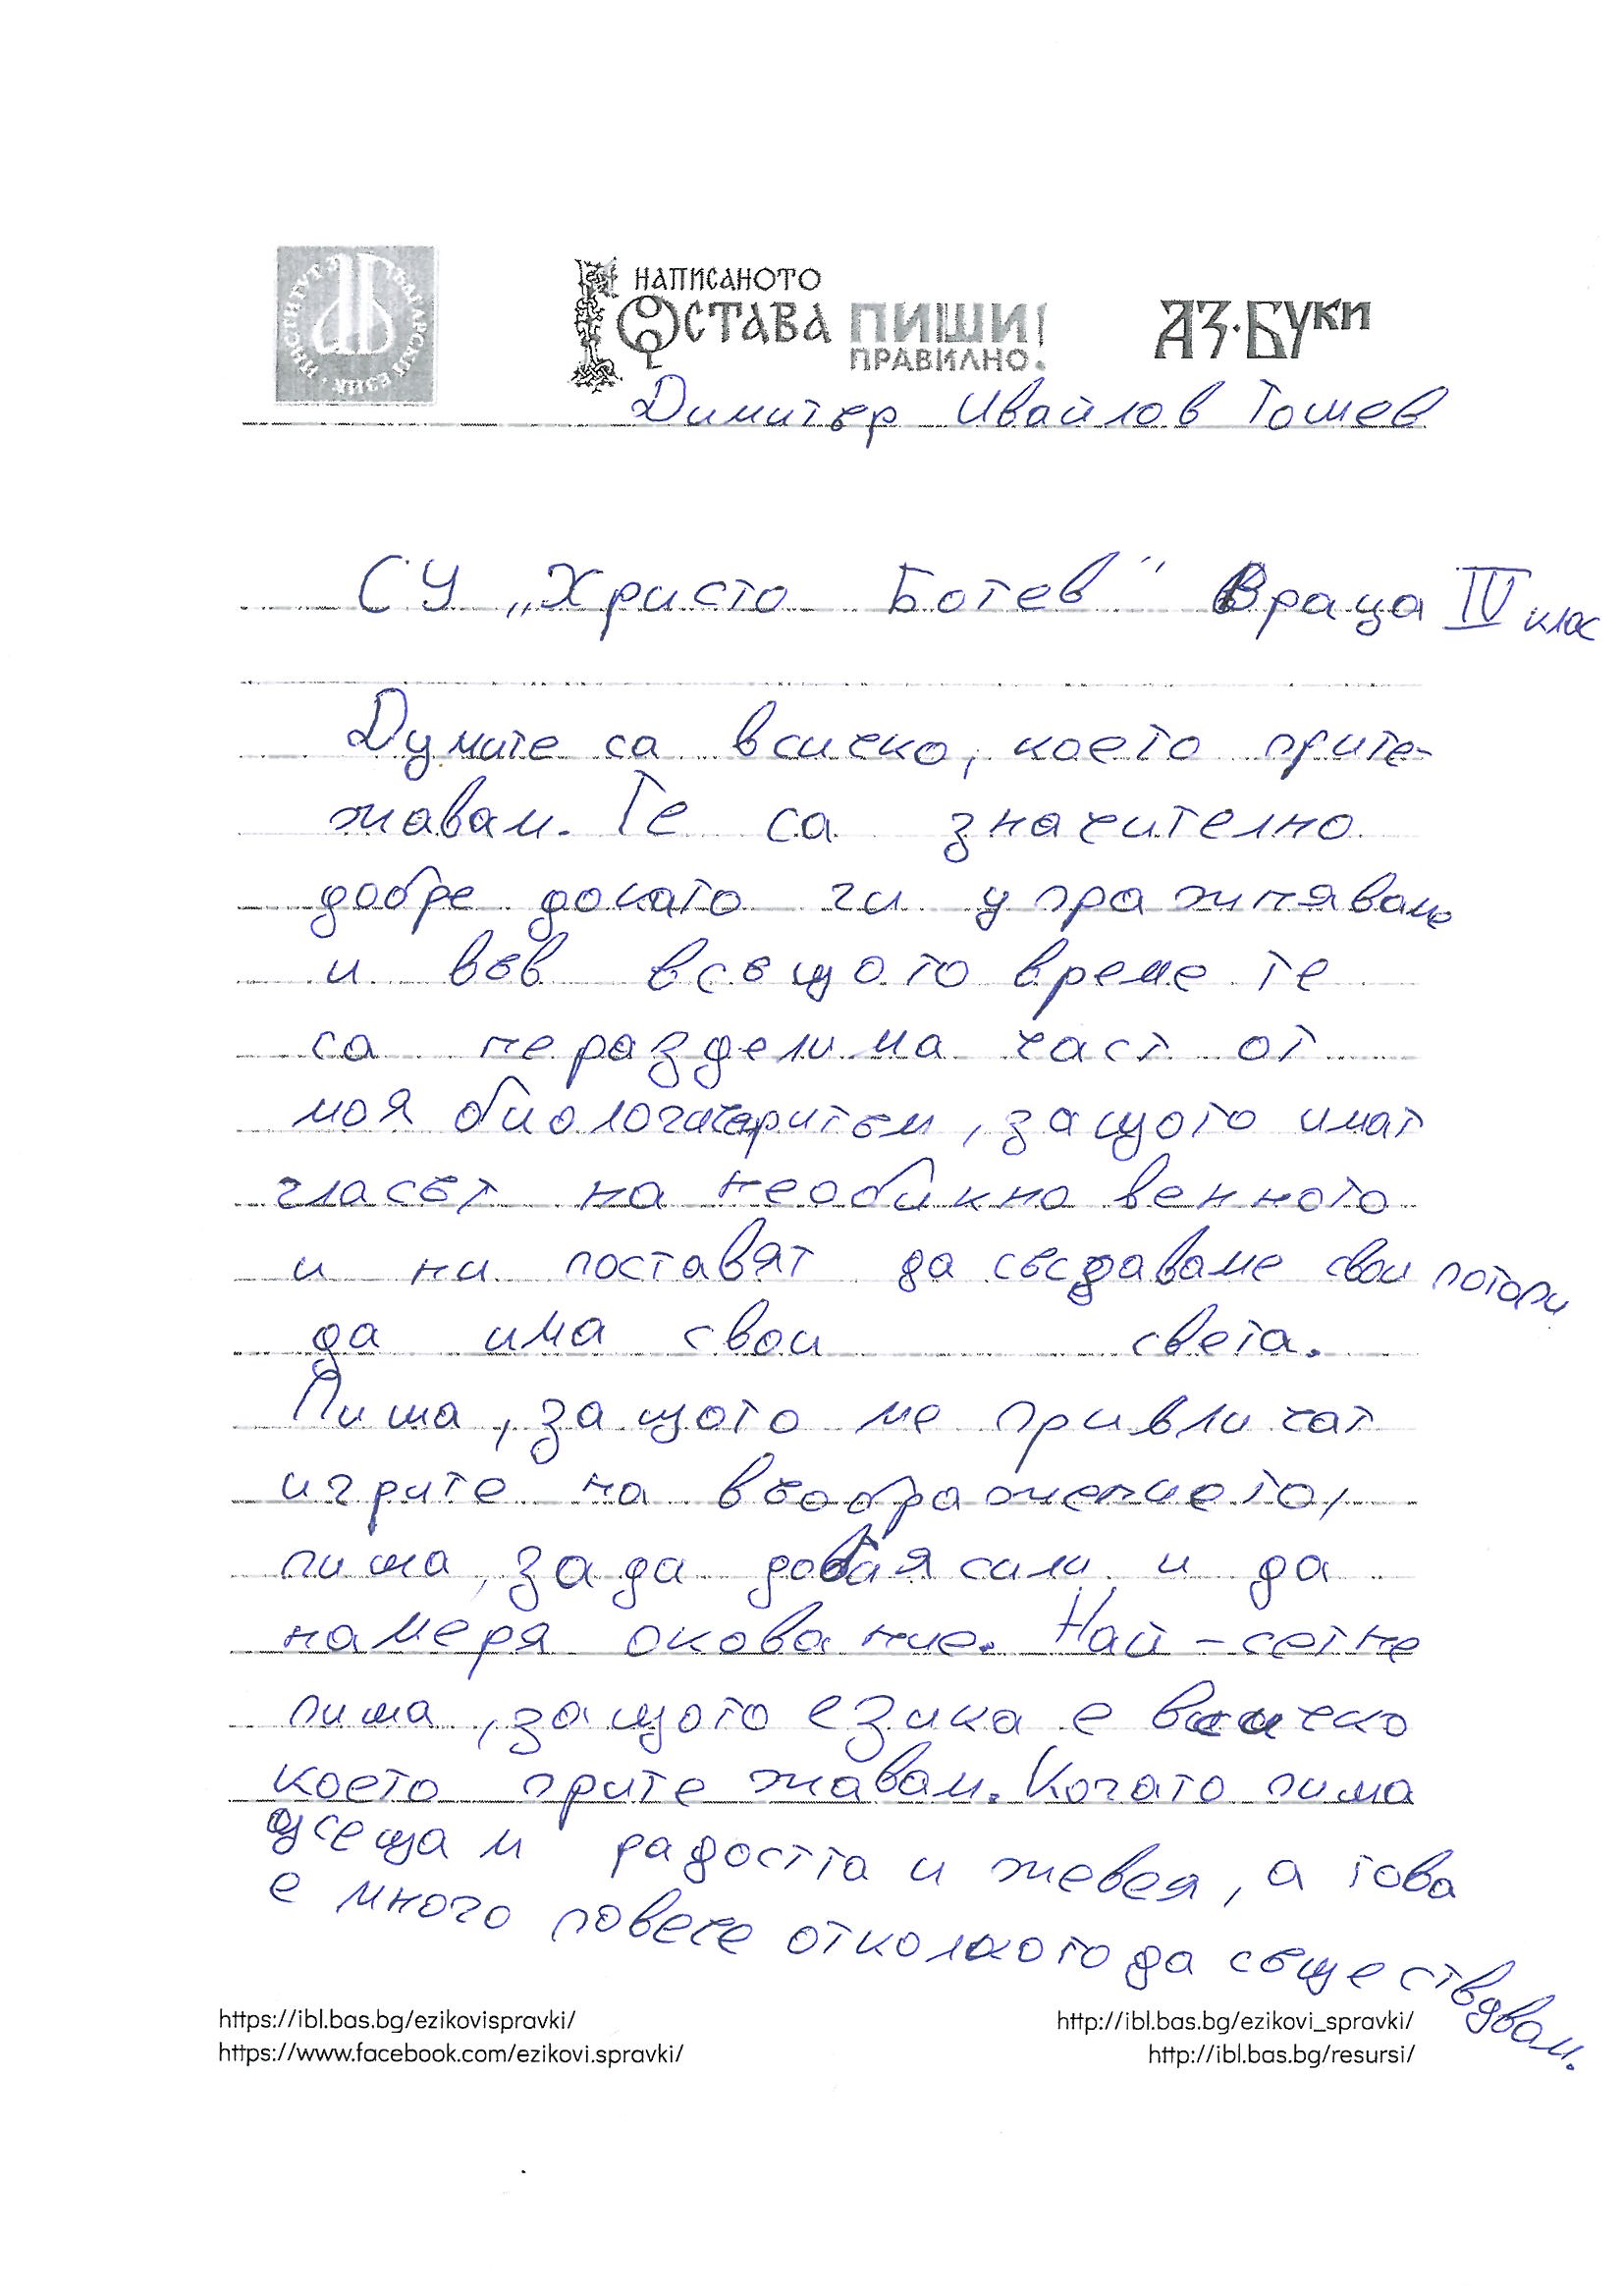 ИНСТИТУТ ЗА БЪЛГАРСКИ ЕЗИК
НАПИСАНОТО
ОСТАВА ПИШИ!
ПРАВИЛНО!
АЗ·БУКИ
Димитър Ивайлов Тошев
СУ „Христо Ботев" Враца IV клас
Думите са всичко, което прите-
жавам. Те са значително
добре докато ги упражняваме
и във всъщото време те
са неразделима част от
моя ритъм, защото имат
гласът на необикновенното
и ни поставят да създаваме свои
да има свои света.
Пиша, защото ме привличат
игрите на въображението,
пиша, за да добая сили и да
намеря окование. Най-сетне
пиша, защото езика е всичко
което притежавам. Когато пиша
усещам радостта и жевея, а това
е много повече отколкото да съществувам.
https://ibl.bas.bg/ezikovispravki/ http://ibl.bas.bg/ezikovi_spravki/
https://www.facebook.com/ezikovi.spravki/ http://ibl.bas.bg/resursi/